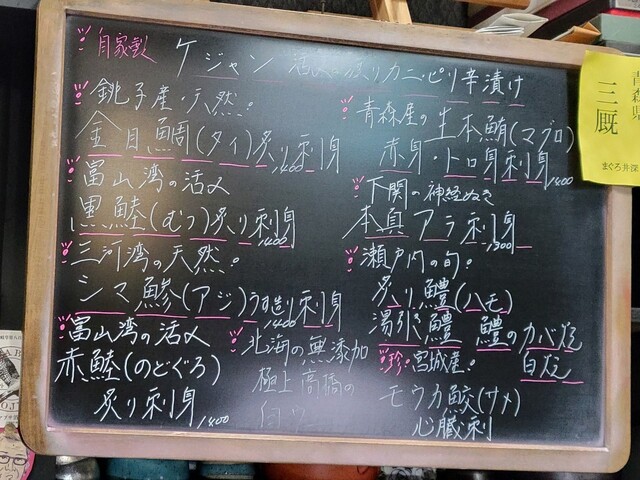 自家製 ケジャン 活〆 渡りカニ・ピリ辛漬け
銚子産・天然!
金目鯛(タイ)炙り刺身 1,400
富山湾の活〆
黒鯥(むつ)炙り刺身 1,400
三河湾の天然!
シマ鯵(アジ)刺身 1,400
富山湾の活〆
赤鯥(のどぐろ)
炙り刺身 1,400
北海の無添加
極上高橋の
青森産の生本鮪(マグロ)
赤身・トロ身刺身 1,400
下関の神経ぬき
本真アラ刺身 1,300
瀬戸内の旬!
炙り鱧(ハモ)
湯引き鱧 鱧のカバ焼
白焼
珍 宮城産!
モウカ鮫(サメ)
心臓刺
青森県
三厩
まぐろ丼